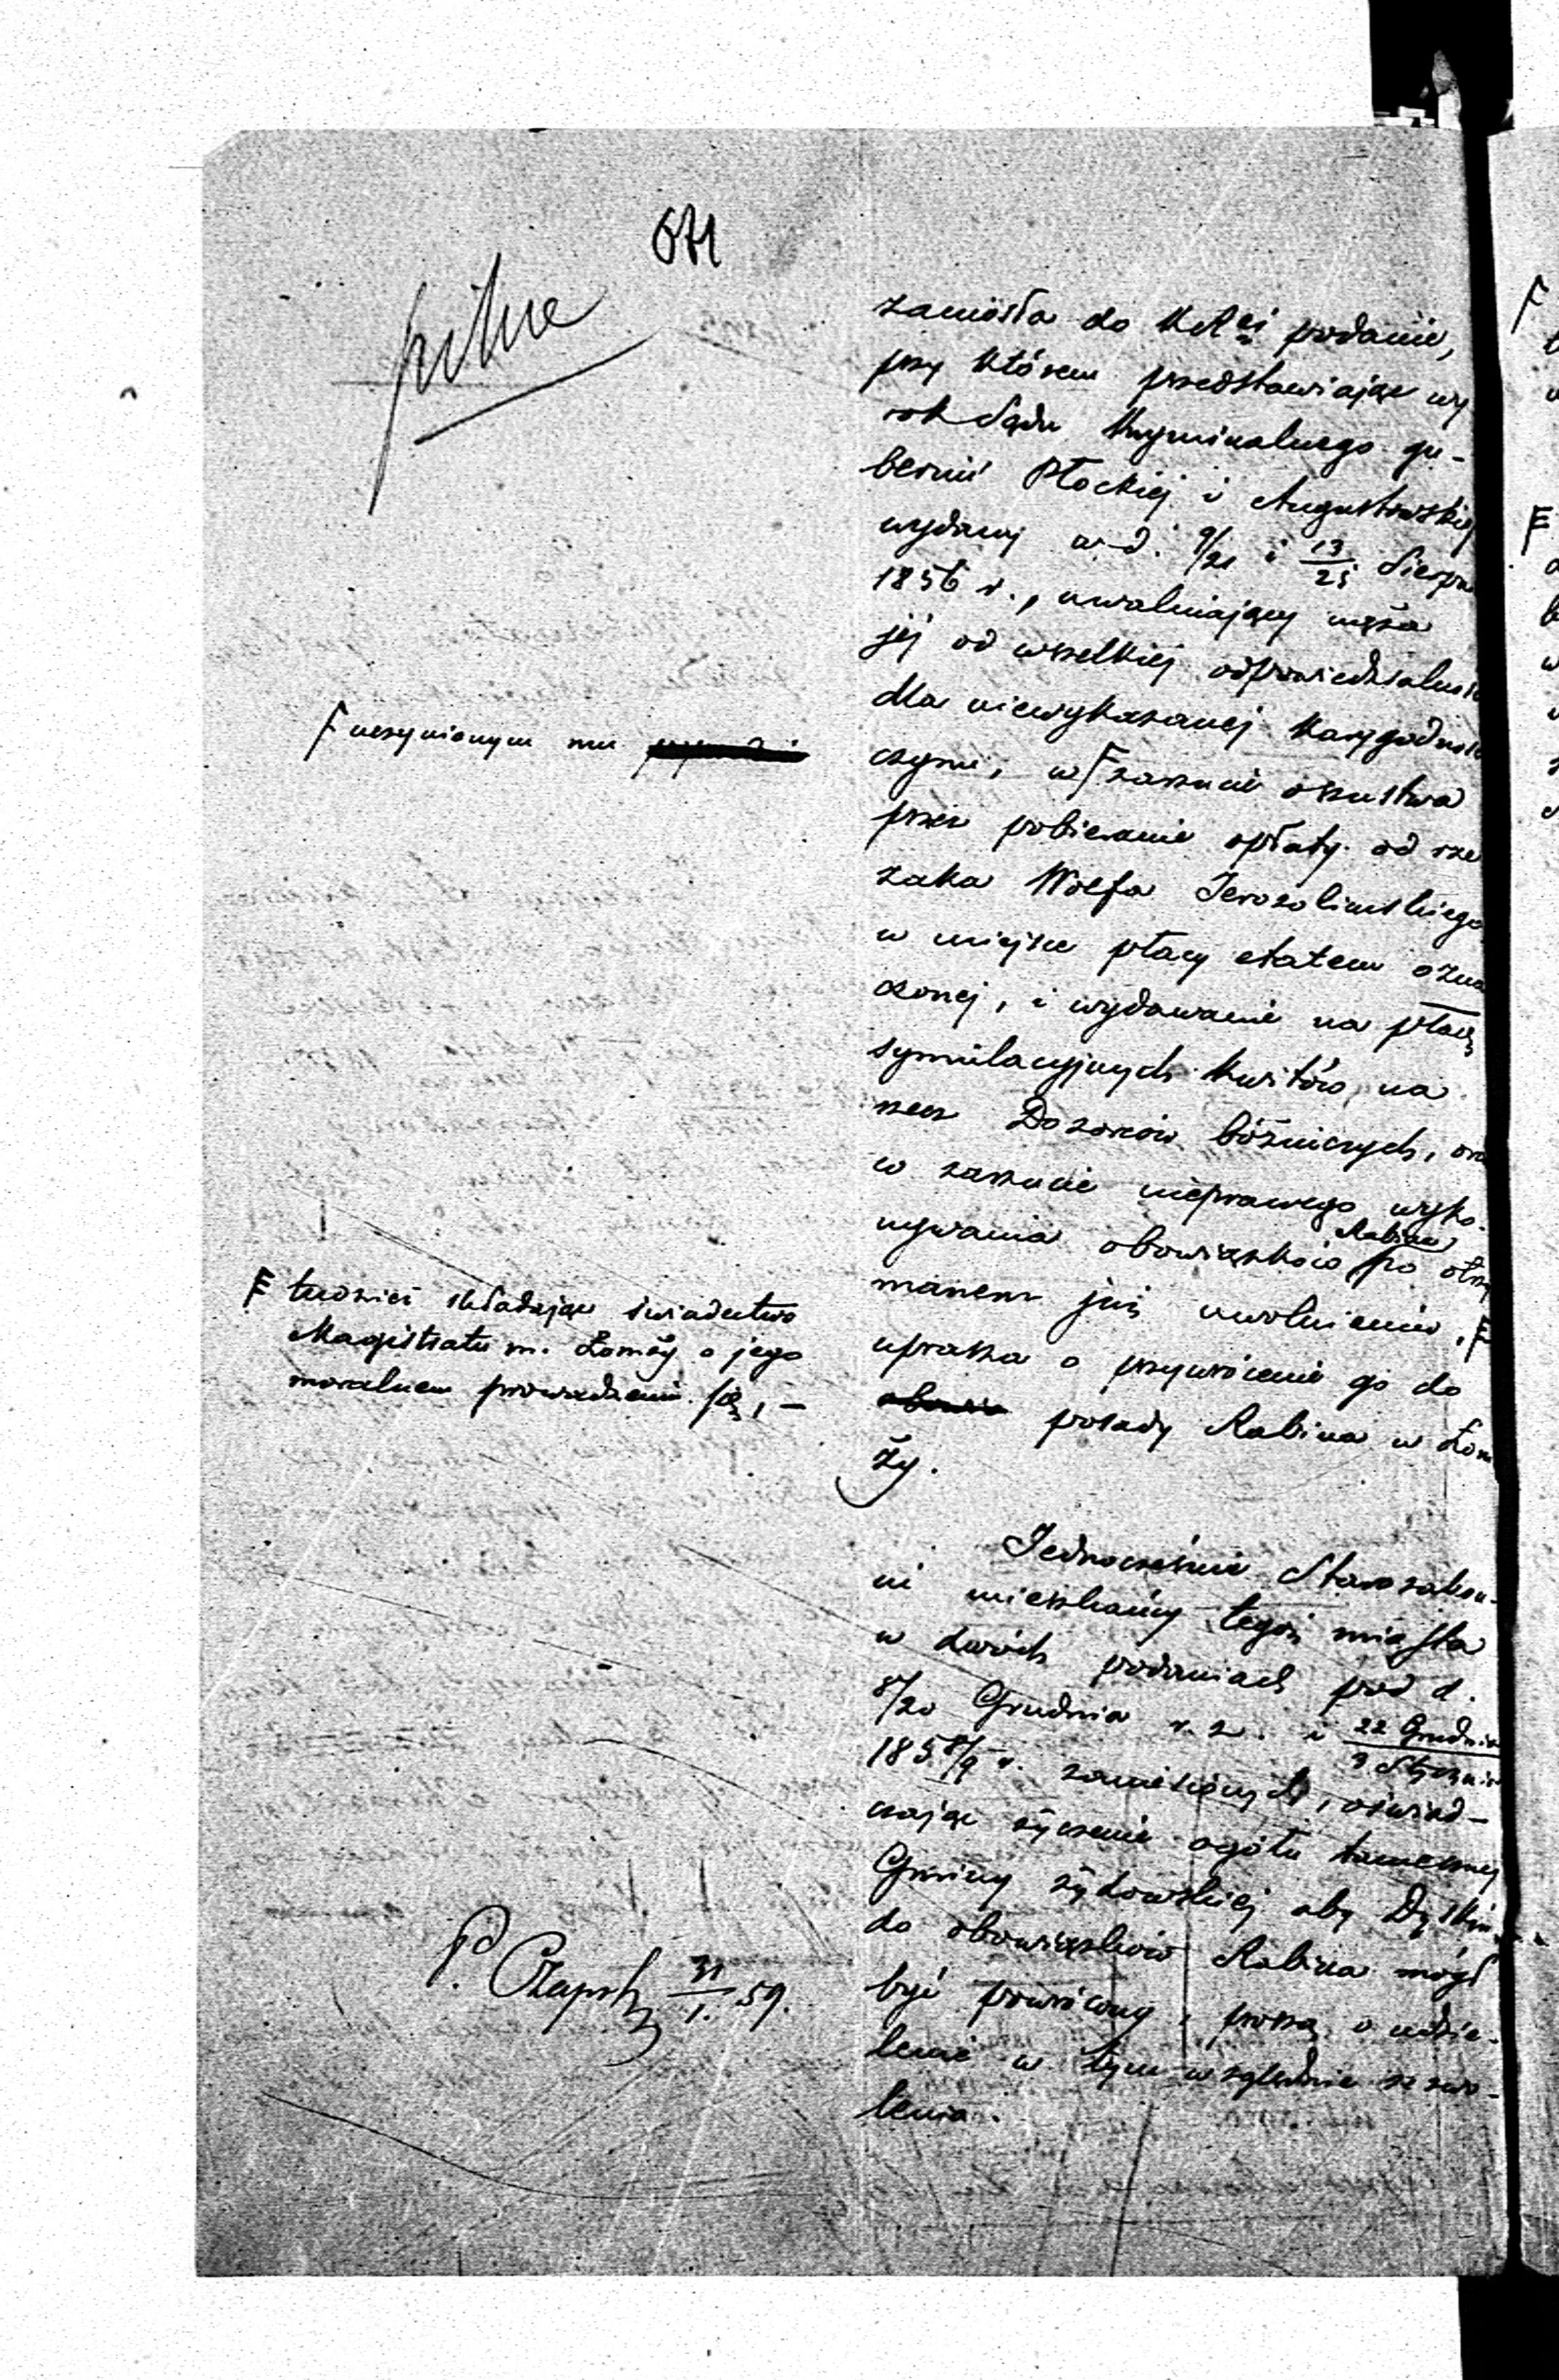 671
pilne
zaniosła do KRŚi podanie,
przy którem przedstawiając wy
rok Sądu Kryminalnego gu-
bernii Płockiej i Augustowskiej
wydany w d. 9/21 i 13/25 Sierpn
1856 r., uwalniający męża
jej od wszelkiej odpowiedzialnoś
dla niewykazanej karygodnoś
czynu, w F zarzucie oszustwa
przez pobieranie opłaty od rze
zaka Wolfa Jerozolimskiego
w miejsce płacy etatem ozna
czonej, i wydawanie na płacę
symulacyjnych kwitów, na
rzecz Dozorców bóżniczych, ora
w zarzucie nieprawego wyko-
nywania obowiązków Rabina po otrzy
manem już uwolnieniu, F
uprasza o przywrócenie go do
posady Rabina w Łom
ży.
F uczynionym mu
F tudzież składając świadectwo
Magistratu m. Łomży o jego
moralnem prowadzeniu się, —
Jednocześnie Starozakon-
ni mieszkańcy tegoż miasta
w dwóch podaniach pod d.
8/20 Grudnia r. z. i 22 Grudnia / 3 Stycznia
1858/9 r. zaniesionych, oświad-
czając życzenie ogółu tamecznej
Gminy żydowskiej aby Dyskin
do obowiązków Rabina mógł
być powrócony, proszą o udzie-
lenie w tym względzie zezwo-
lenia.
P. Czapski 31/1. 59.